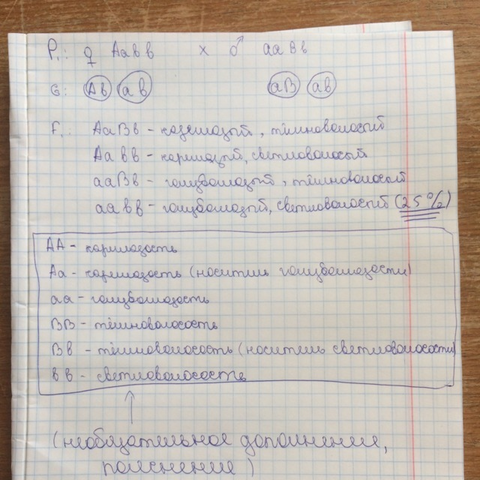 P₁: ♀ Aaвв × ♂ aaBв
G: Aв aв aB aв
F₁: AaBв - кареглазый, тёмноволосый
Aaвв - кареглазый, светловолосый
aaBв - голубоглазый, тёмноволосый
aaвв - голубоглазый, светловолосый (25%)
AA - кареглазость
Aa - кареглазость (носитель голубоглазости)
aa - голубоглазость
BB - тёмноволосость
Bв - тёмноволосость (носитель светловолосости)
вв - светловолосость
(необязательное дополнение,
пояснение)